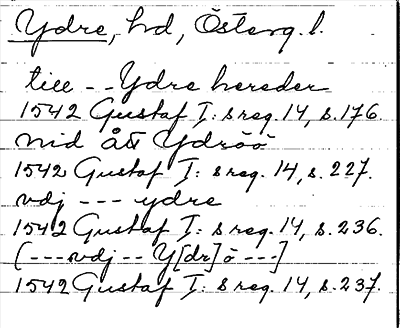 Ydre, hd, Österg. l.
till - - Ydre hereder
1542 Gustaf I: s reg. 14, s. 176.
nid ått Ydröö
1542 Gustaf I: s reg. 14, s. 227.
vdj - - - ydre
1542 Gustaf I: s reg. 14, s. 236.
[- - - vdj - - Y[dr]ö - - -]
1542 Gustaf I: s reg. 14, s. 237.